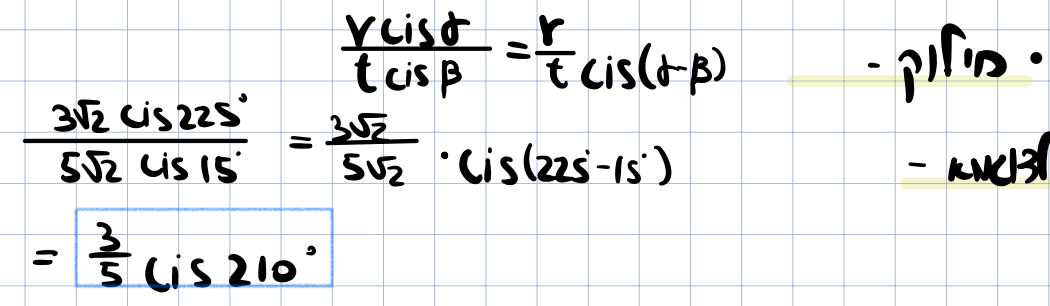 • חילוק - \frac{r cis α}{t cis β} = \frac{r}{t} cis(α-β)
לדוגמא - \frac{3√2 cis 225°}{5√2 cis 15°} = \frac{3√2}{5√2} · cis(225°-15°)
= \frac{3}{5} cis 210°